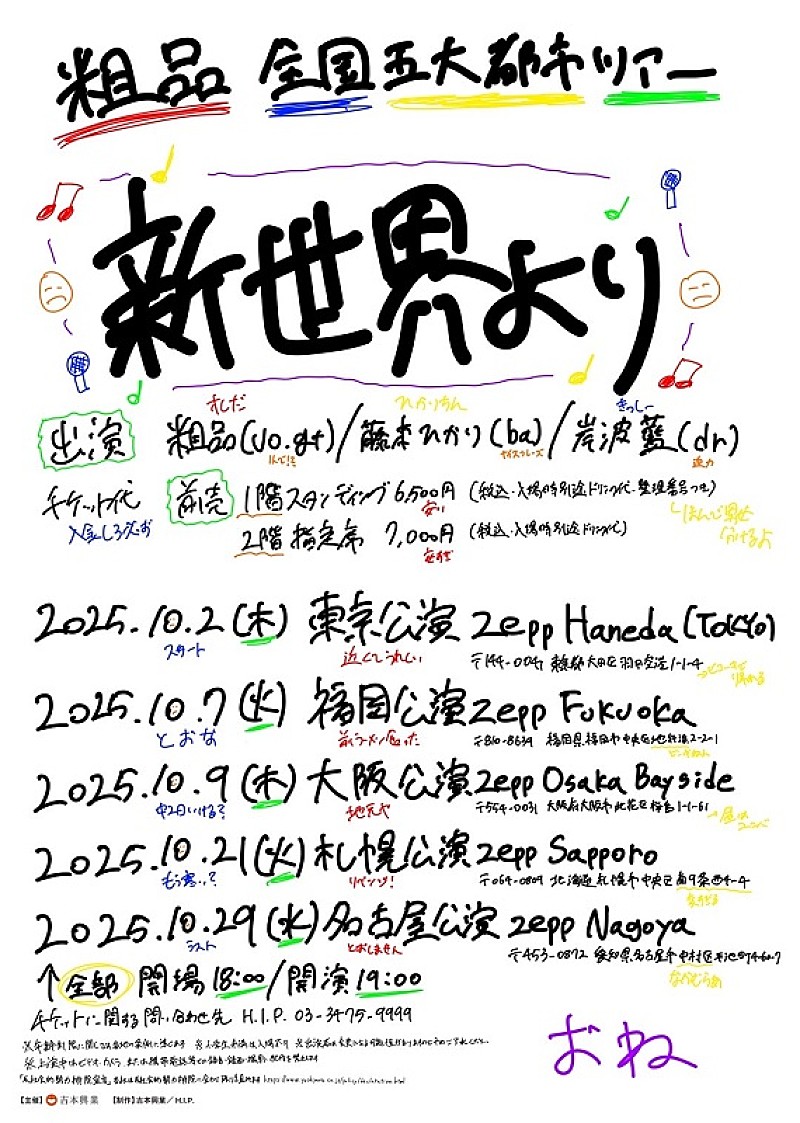 粗品 全国五大都市ツアー
新世界より
そしな ひかりちゃん きっしー
出演 粗品(vo.gt)/藤本ひかり(ba)/岸波藍(dr)
ナイスフレーズ 迫力
チケット代 前売 1階スタンディング 6,500円 (税込・入場時別途ドリンク代・整理番号つき)
安い
2階 指定席 7,000円 (税込・入場時別途ドリンク代)
2025.10.2(木) 東京公演 Zepp Haneda(TOKYO)
スタート 近くてうれしい 〒144-0041 東京都大田区羽田空港1-1-4
2025.10.7(火) 福岡公演 Zepp Fukuoka
とおな 〒810-8639 福岡県福岡市中央区地行浜2-2-1
2025.10.9(木) 大阪公演 Zepp Osaka Bayside
中2日いける? 地元や 〒554-0031 大阪府大阪市此花区桜島1-1-61
2025.10.21(火) 札幌公演 Zepp Sapporo
もう寒い? リベンジ! 〒064-0809 北海道札幌市中央区南9条西4-4
2025.10.29(水) 名古屋公演 Zepp Nagoya
ラスト とばしません 〒453-0872 愛知県名古屋市中村区平池町4-60-7
↑全部 開場 18:00/開演 19:00
チケットに関する問い合わせ先 H.I.P. 03-3475-9999
おね
【主催】吉本興業 【制作】吉本興業/H.I.P.